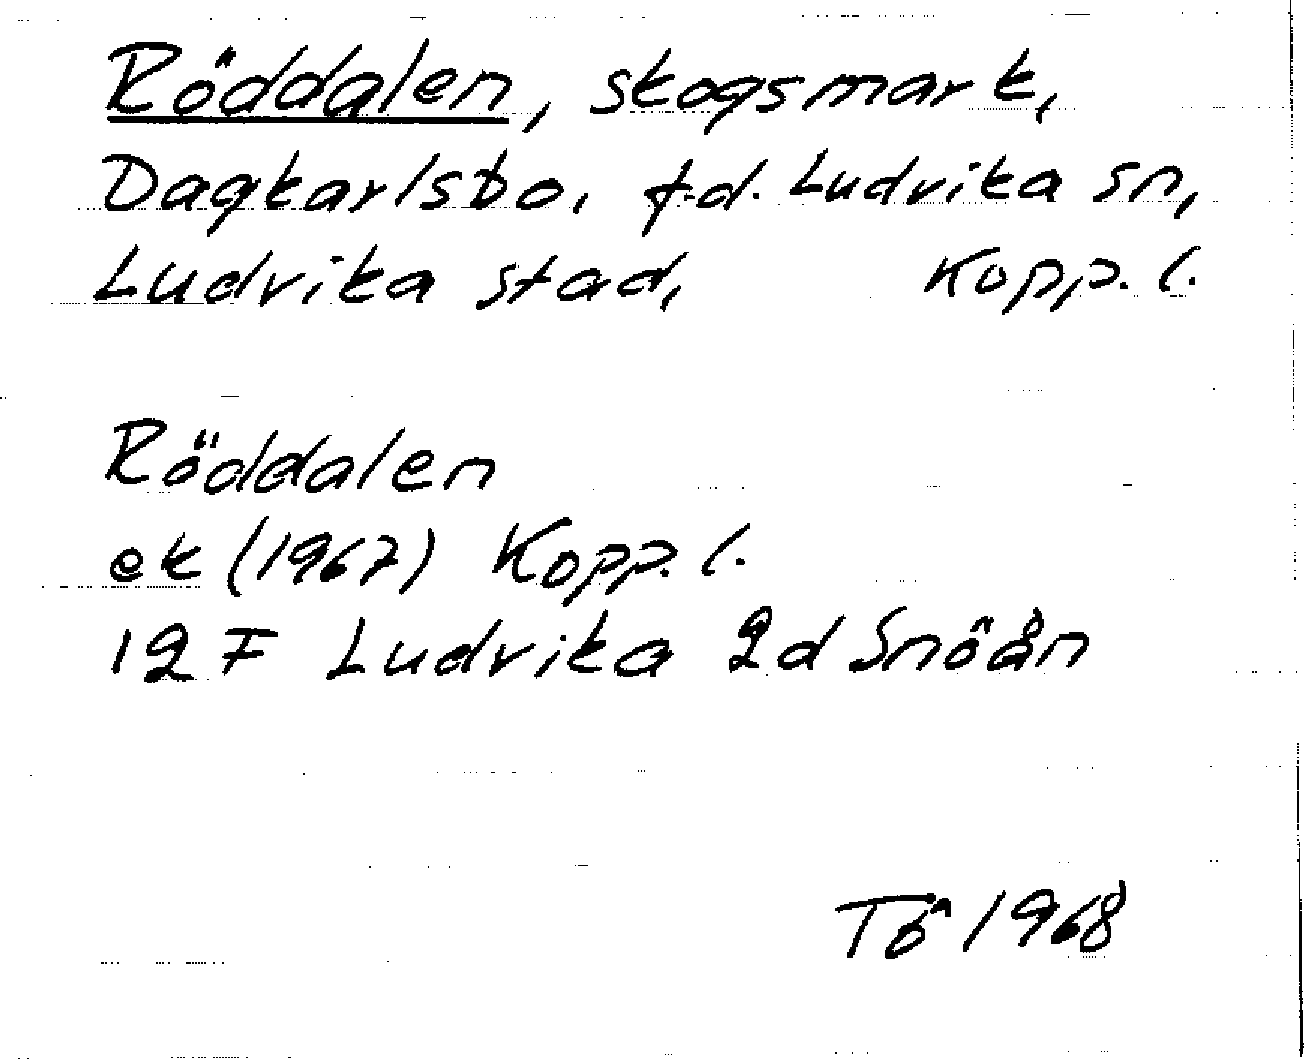 Röddalen, skogsmark,
Dagkarlsbo, f.d. Ludvika sn,
Ludvika stad, Kopp. l.
Röddalen
ek (1967) Kopp. l.
12 F Ludvika 2d Snöån
Tö 1968